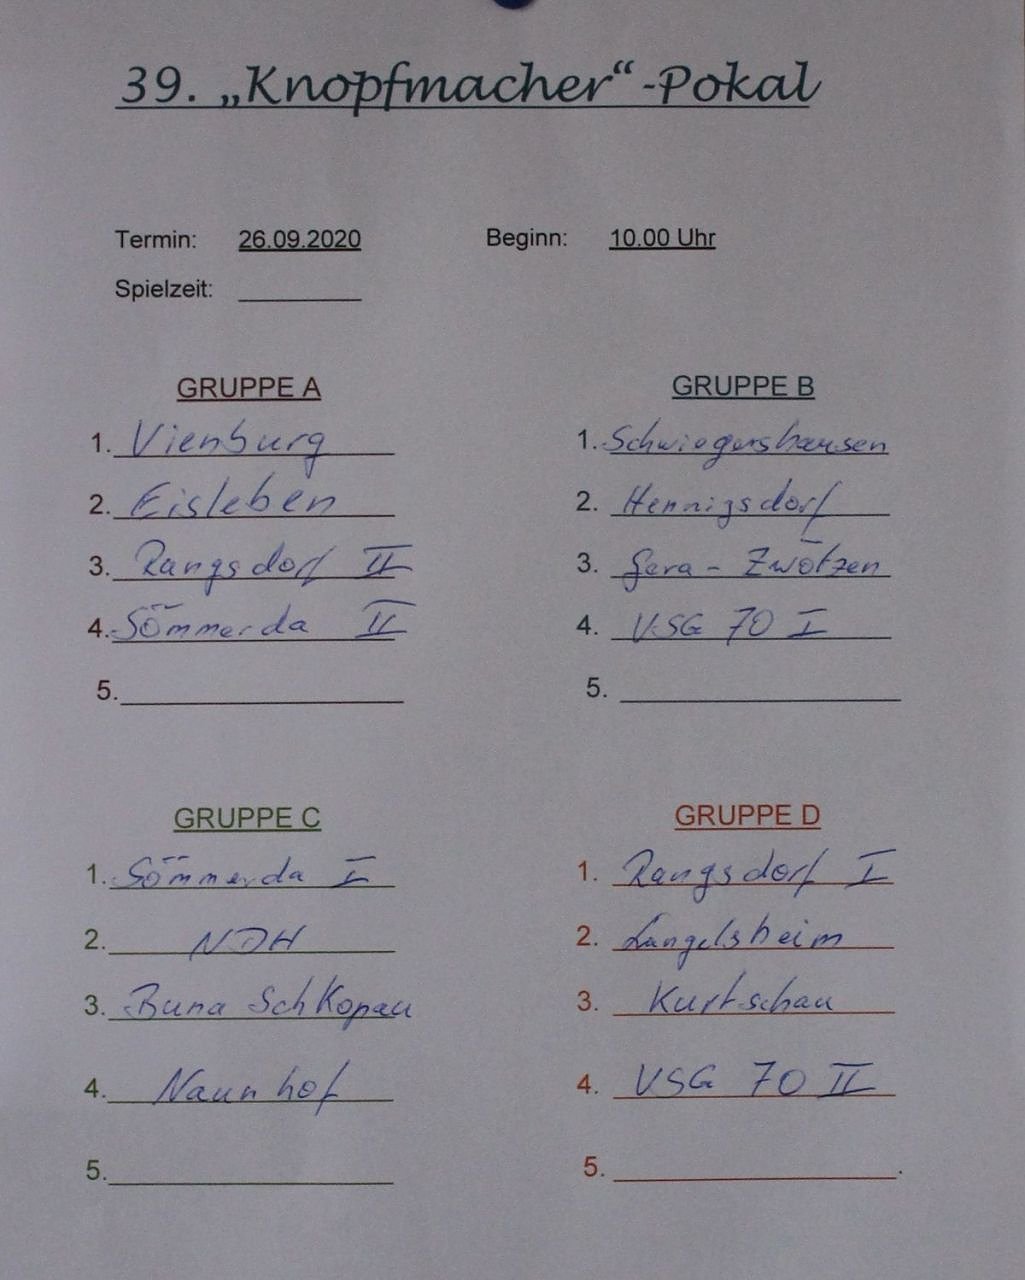 39. „Knopfmacher“-Pokal
Termin: 26.09.2020 Beginn: 10.00 Uhr
Spielzeit:
GRUPPE A
1. Vienburg
2. Eisleben
3. Rangsdorf II
4. Sömmerda II
5.
GRUPPE B
1. Schwiegershausen
2. Hennigsdorf
3. Gera - Zwötzen
4. VSG 70 I
5.
GRUPPE C
1. Sömmerda I
2. NDH
3. Buna Schkopau
4. Naunhof
5.
GRUPPE D
1. Rangsdorf I
2. Langelsheim
3. Kurtschau
4. VSG 70 II
5.